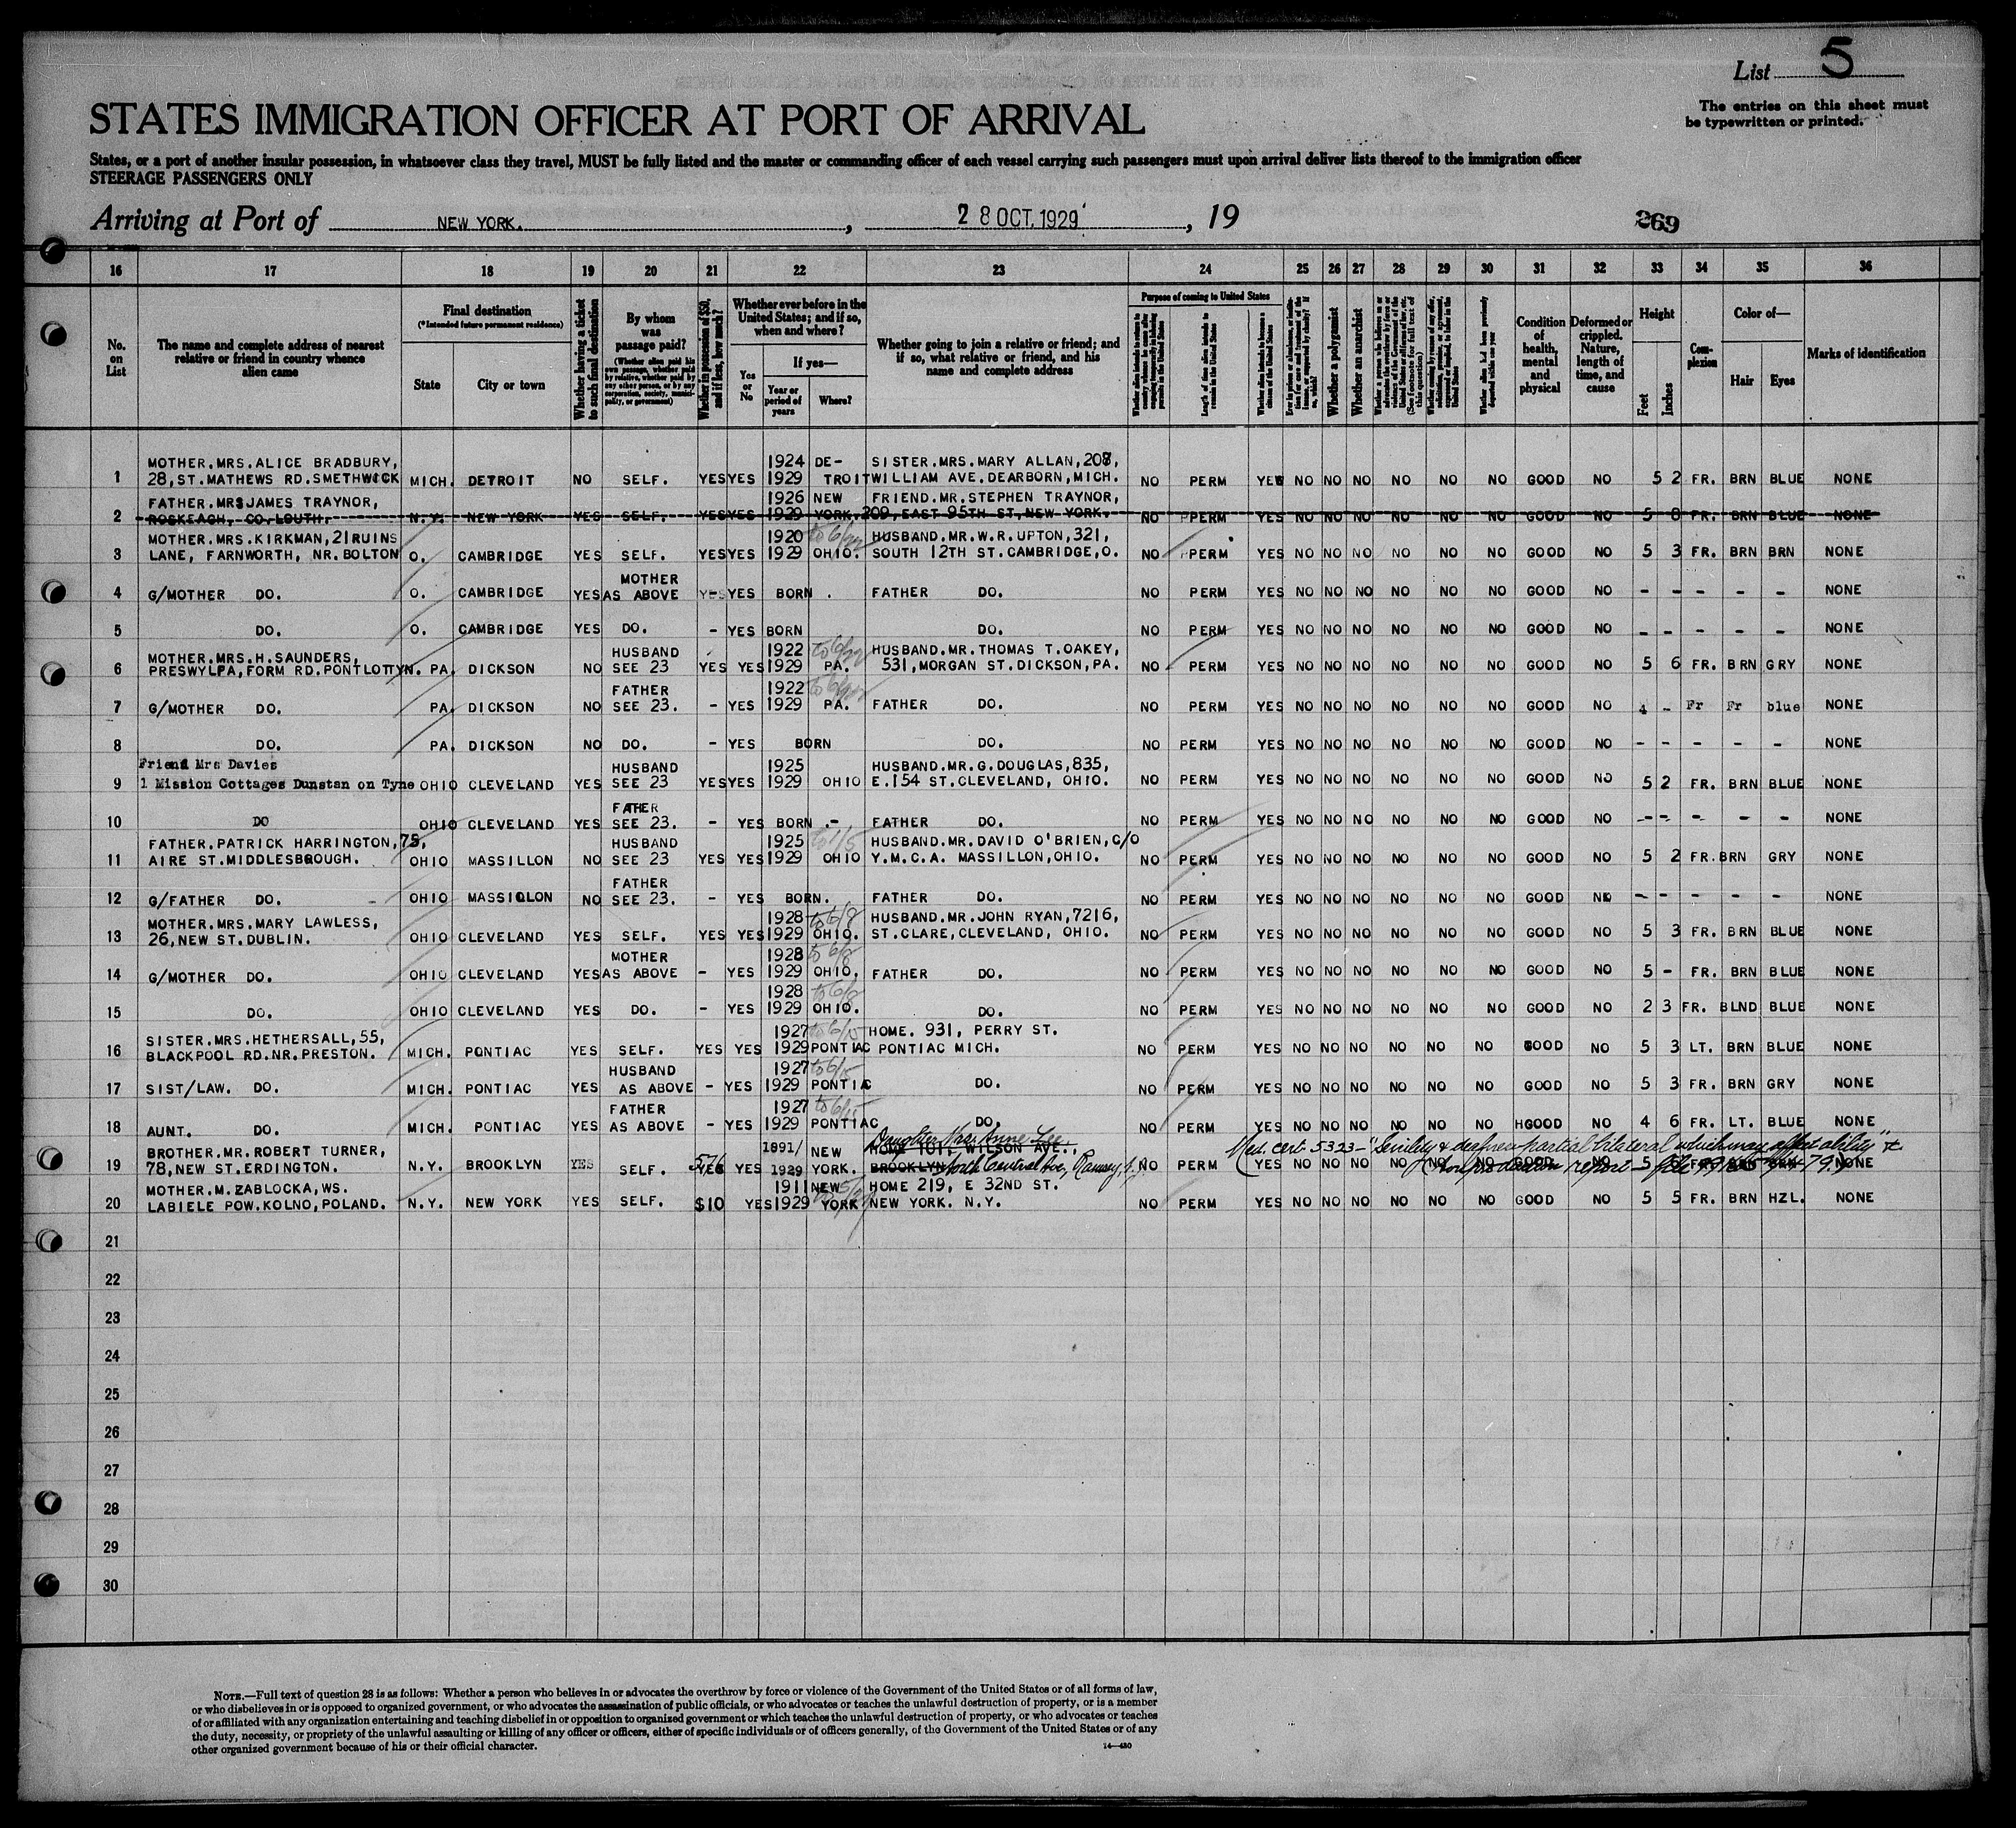 List 5
The entries on this sheet must
be typewritten or printed.
STATES IMMIGRATION OFFICER AT PORT OF ARRIVAL
States, or a port of another insular possession, in whatsoever class they travel, MUST be fully listed and the master or commanding officer of each vessel carrying such passengers must upon arrival deliver lists thereof to the immigration officer
STEERAGE PASSENGERS ONLY
Arriving at Port of NEW YORK. , 28 OCT. 1929 , 19
269
16 17 18 19 20 21 22 23 24 25 26 27 28 29 30 31 32 33 34 35 36
No. on List
The name and complete address of nearest relative or friend in country whence alien came
Final destination
(*Intended future permanent residence)
State
City or town
Whether having a ticket to such final destination
By whom was passage paid?
(Whether alien paid his own passage, whether paid by relative, whether paid by any other person, or by any corporation, society, municipality, or government)
Whether in possession of $50, and if less, how much?
Whether ever before in the United States; and if so, when and where?
Yes or No
If yes—
Year or period of years
Where?
Whether going to join a relative or friend; and if so, what relative or friend, and his name and complete address
Purpose of coming to United States
Length of time alien intends to remain in the United States
Whether alien intends to become a citizen of the United States
Whether a polygamist
Whether an anarchist
Whether alien had been previously deported within one year
Condition of health, mental and physical
Deformed or crippled. Nature, length of time, and cause
Height
Feet
Inches
Complexion
Color of—
Hair
Eyes
Marks of identification
MOTHER.MRS.ALICE BRADBURY, 1924 DE- SISTER.MRS.MARY ALLAN,208,
1 28,ST.MATHEWS RD.SMETHWICK MICH. DETROIT NO SELF. YES YES 1929 TROIT WILLIAM AVE.DEARBORN,MICH. NO PERM YES NO NO NO NO NO NO GOOD NO 5 2 FR. BRN BLUE NONE
FATHER.MRSJAMES TRAYNOR, 1926 NEW FRIEND.MR.STEPHEN TRAYNOR,
2 ROSKEAGH, CO,LOUTH, N.Y. NEW YORK YES SELF. YES YES 1929 YORK. 209, EAST 95TH ST,NEW YORK. NO PERM YES NO NO NO NO NO NO GOOD NO 5 8 FR. BRN BLUE NONE
MOTHER.MRS.KIRKMAN,21RUINS 1920 HUSBAND.MR.W.R.UPTON,321,
3 LANE, FARNWORTH, NR.BOLTON O. CAMBRIDGE YES SELF. YES YES 1929 OHIO. SOUTH 12TH ST.CAMBRIDGE,O. NO PERM YES NO NO NO NO NO NO GOOD NO 5 3 FR. BRN BRN NONE
MOTHER
4 G/MOTHER DO. O. CAMBRIDGE YES AS ABOVE YES YES BORN . FATHER DO. NO PERM YES NO NO NO NO NO NO GOOD NO - - - - - NONE
5 DO. O. CAMBRIDGE YES DO. - YES BORN DO. NO PERM YES NO NO NO NO NO NO GOOD NO - - - - - NONE
MOTHER.MRS.H.SAUNDERS, HUSBAND 1922 to 6/22 HUSBAND.MR.THOMAS T.OAKEY,
6 PRESWYLFA,FORM RD.PONTLOTTYN. PA. DICKSON NO SEE 23 YES YES 1929 PA. 531,MORGAN ST.DICKSON,PA. NO PERM YES NO NO NO NO NO NO GOOD NO 5 6 FR. BRN GRY NONE
FATHER 1922
7 G/MOTHER DO. PA. DICKSON NO SEE 23. - YES 1929 PA. FATHER DO. NO PERM YES NO NO NO NO NO NO GOOD NO 4 - Fr Fr blue NONE
8 DO. PA. DICKSON NO DO. - YES BORN DO. NO PERM YES NO NO NO NO NO NO GOOD NO - - - - - NONE
Friend Mrs Davies HUSBAND 1925 HUSBAND.MR.G.DOUGLAS,835,
9 1 Mission Cottages Dunstan on Tyne OHIO CLEVELAND YES SEE 23 YES YES 1929 OHIO E.154 ST.CLEVELAND, OHIO. NO PERM YES NO NO NO NO NO NO GOOD NO 5 2 FR. BRN BLUE NONE
FATHER
10 DO OHIO CLEVELAND YES SEE 23. - YES BORN .- FATHER DO. NO PERM YES NO NO NO NO NO NO GOOD NO - - - - - NONE
FATHER.PATRICK HARRINGTON,75, HUSBAND 1925 to 1/5 HUSBAND.MR.DAVID O'BRIEN,C/O
11 AIRE ST.MIDDLESBROUGH. OHIO MASSILLON NO SEE 23 YES YES 1929 OHIO Y.M.C.A. MASSILLON,OHIO. NO PERM YES NO NO NO NO NO NO GOOD NO 5 2 FR. BRN GRY NONE
FATHER
12 G/FATHER DO. OHIO MASSILLON NO SEE 23. - YES BORN. FATHER DO. NO PERM YES NO NO NO NO NO NO GOOD NO - - - - - NONE
MOTHER.MRS.MARY LAWLESS, 1928 to 6/8 HUSBAND.MR.JOHN RYAN,7216,
13 26,NEW ST.DUBLIN. OHIO CLEVELAND YES SELF. YES YES 1929 OHIO. ST.CLARE,CLEVELAND, OHIO. NO PERM YES NO NO NO NO NO NO GOOD NO 5 3 FR. BRN BLUE NONE
MOTHER 1928 to 6/8
14 G/MOTHER DO. OHIO CLEVELAND YES AS ABOVE - YES 1929 OHIO, FATHER DO. NO PERM YES NO NO NO NO NO NO GOOD NO 5 - FR. BRN BLUE NONE
1928 to 6/8
15 DO. OHIO CLEVELAND YES DO. - YES 1929 OHIO. DO. NO PERM YES NO NO NO NO NO NO GOOD NO 2 3 FR. BLND BLUE NONE
SISTER.MRS.HETHERSALL,55, 1927 to 6/15 HOME. 931, PERRY ST.
16 BLACKPOOL RD.NR.PRESTON. MICH. PONTIAC YES SELF. YES YES 1929 PONTIAC PONTIAC MICH. NO PERM YES NO NO NO NO NO NO GOOD NO 5 3 LT. BRN BLUE NONE
HUSBAND 1927 to 6/15
17 SIST/LAW. DO. MICH. PONTIAC YES AS ABOVE - YES 1929 PONTIAC DO. NO PERM YES NO NO NO NO NO NO GOOD NO 5 3 FR. BRN GRY NONE
FATHER 1927 to 6/15
18 AUNT. DO. MICH. PONTIAC YES AS ABOVE - YES 1929 PONTIAC DO. NO PERM YES NO NO NO NO NO NO GOOD NO 4 6 FR. LT. BLUE NONE
Daughter Mrs Anne Lee Med. cert. 5323 - "Senility & deafness partial bilateral which may affect ability" &
BROTHER.MR.ROBERT TURNER, 1891/ NEW HOME 101. WILSON AVE.,
19 78,NEW ST.ERDINGTON. N.Y. BROOKLYN YES SELF. YES YES 1929 YORK. BROOKLYN Central Ave, Ramsey, NO PERM YES NO NO NO NO NO NO GOOD NO 5 NONE
MOTHER.M.ZABLOCKA,WS. 1911 NEW HOME 219, E 32ND ST.
20 LABIELE POW.KOLNO,POLAND. N.Y. NEW YORK YES SELF. $10 YES 1929 YORK NEW YORK. N.Y. NO PERM YES NO NO NO NO NO NO GOOD NO 5 5 FR. BRN HZL. NONE
21
22
23
24
25
26
27
28
29
30
NOTE.—Full text of question 28 is as follows: Whether a person who believes in or advocates the overthrow by force or violence of the Government of the United States or of all forms of law,
or who disbelieves in or is opposed to organized government, or who advocates the assassination of public officials, or who advocates or teaches the unlawful destruction of property, or is a member
of or affiliated with any organization entertaining and teaching disbelief in or opposition to organized government or which teaches the unlawful destruction of property, or who advocates or teaches
the duty, necessity, or propriety of the unlawful assaulting or killing of any officer or officers, either of specific individuals or of officers generally, of the Government of the United States or of any
other organized government because of his or their official character.
14—430